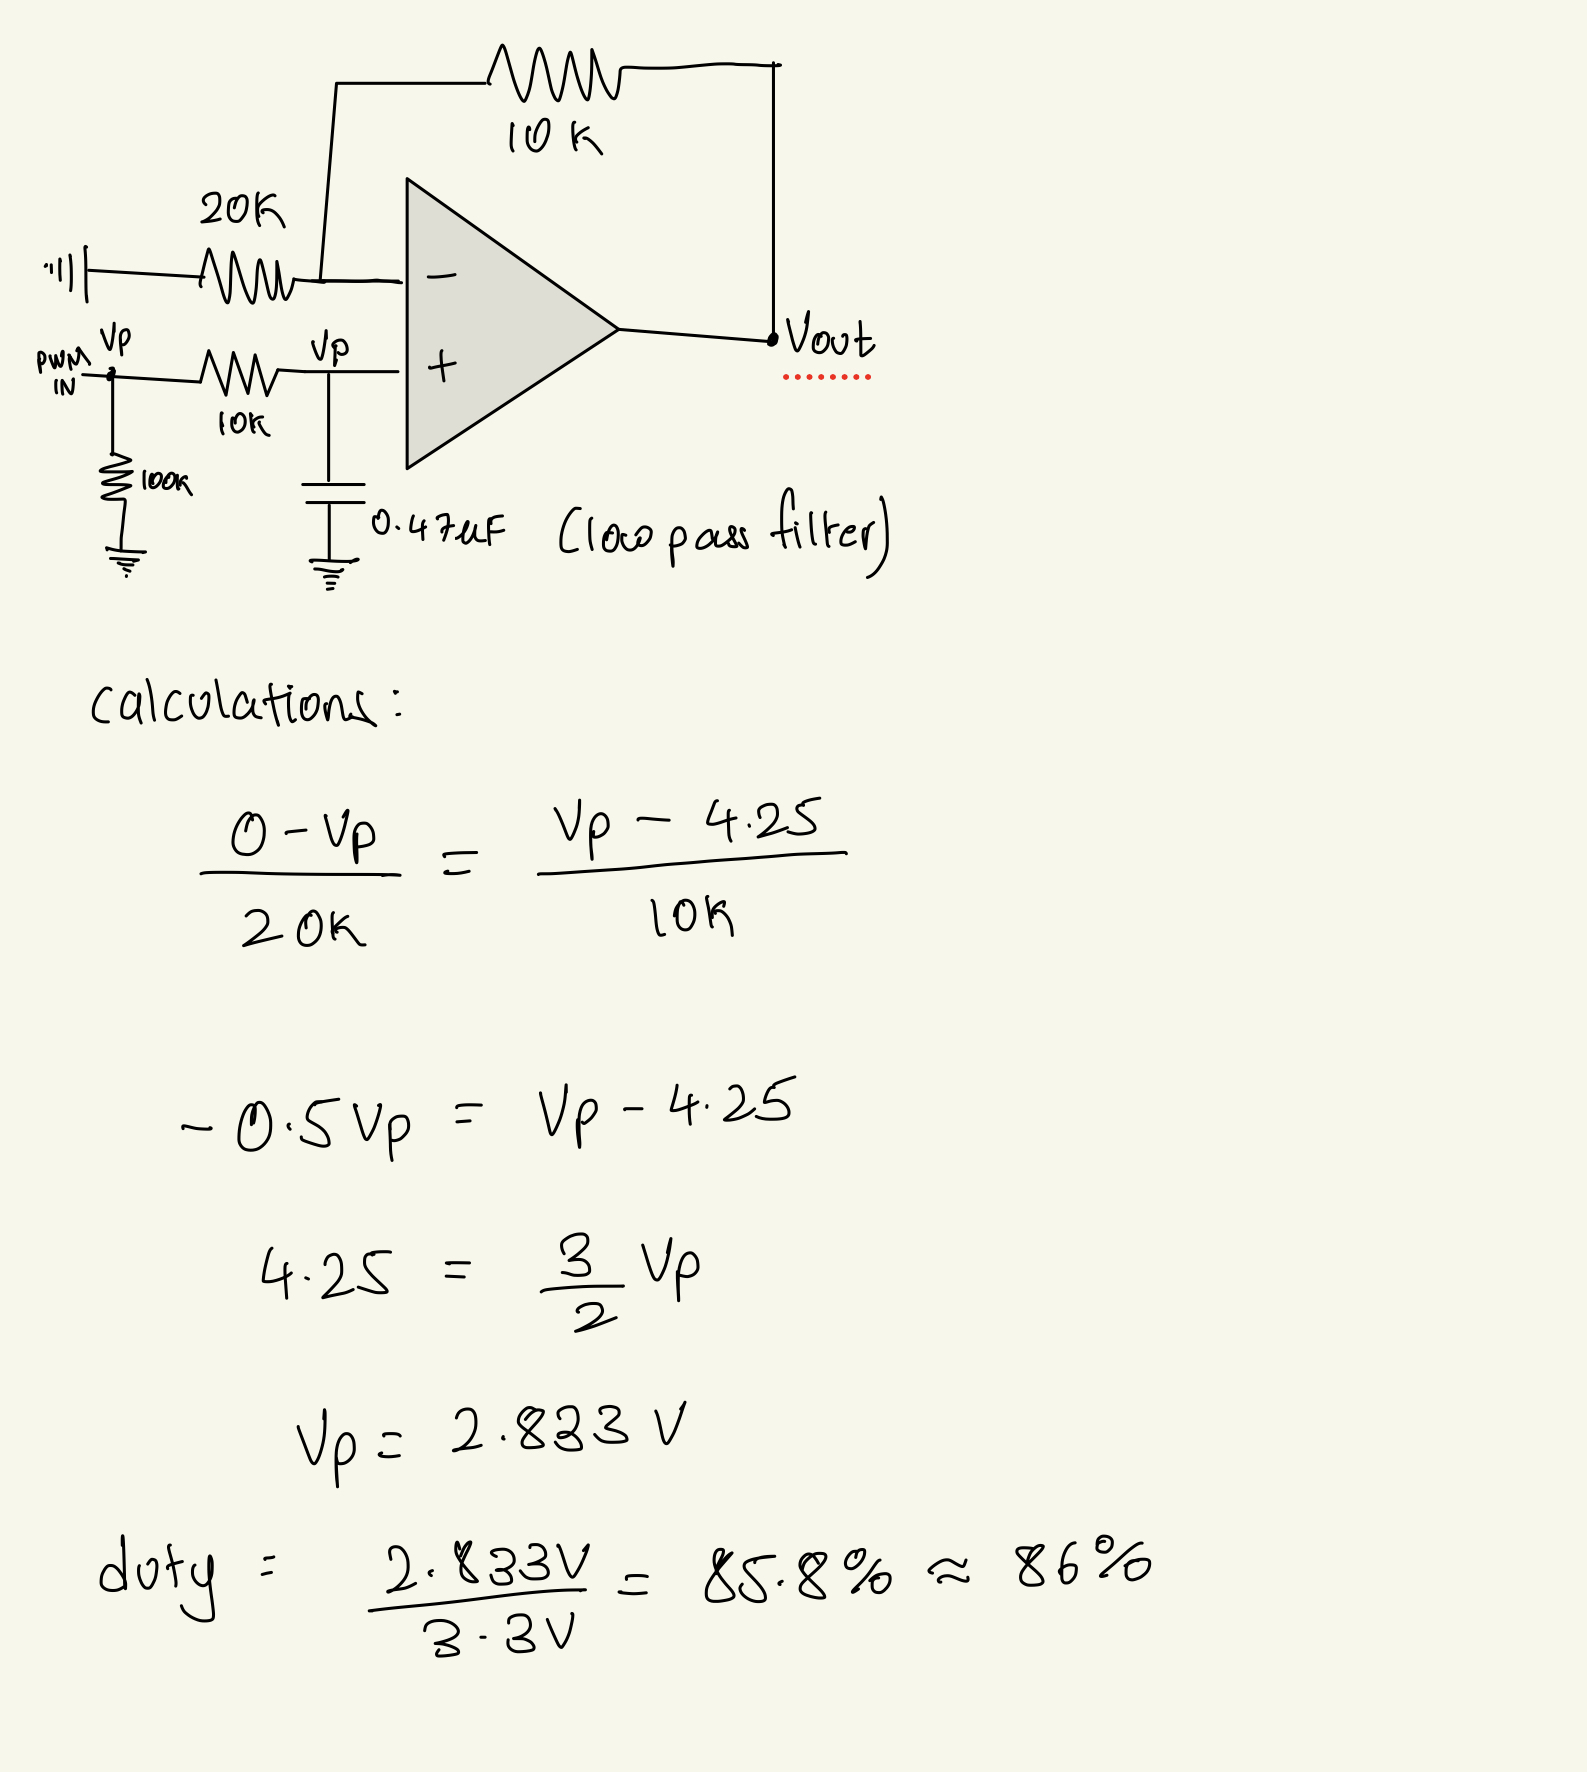 10K
20K
−
Vp
PWM
IN
Vp
+
Vout
10K
100K
0.47uF (low pass filter)
calculations:
0 - Vp / 20K = Vp - 4.25 / 10K
- 0.5 Vp = Vp - 4.25
4.25 = 3/2 Vp
Vp = 2.833 V
duty = 2.833V / 3.3V = 85.8% ≈ 86%